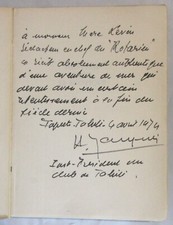 à monsieur Marc Héven
rédacteur en chef du "Rotarien"
ce récit absolument authentique
d'une aventure de mer qui
devait avoir un certain
retentissement à la fin du
siècle dernier
Papeete Tahiti 4 avril 1974
Past-Président du
club de Tahiti.